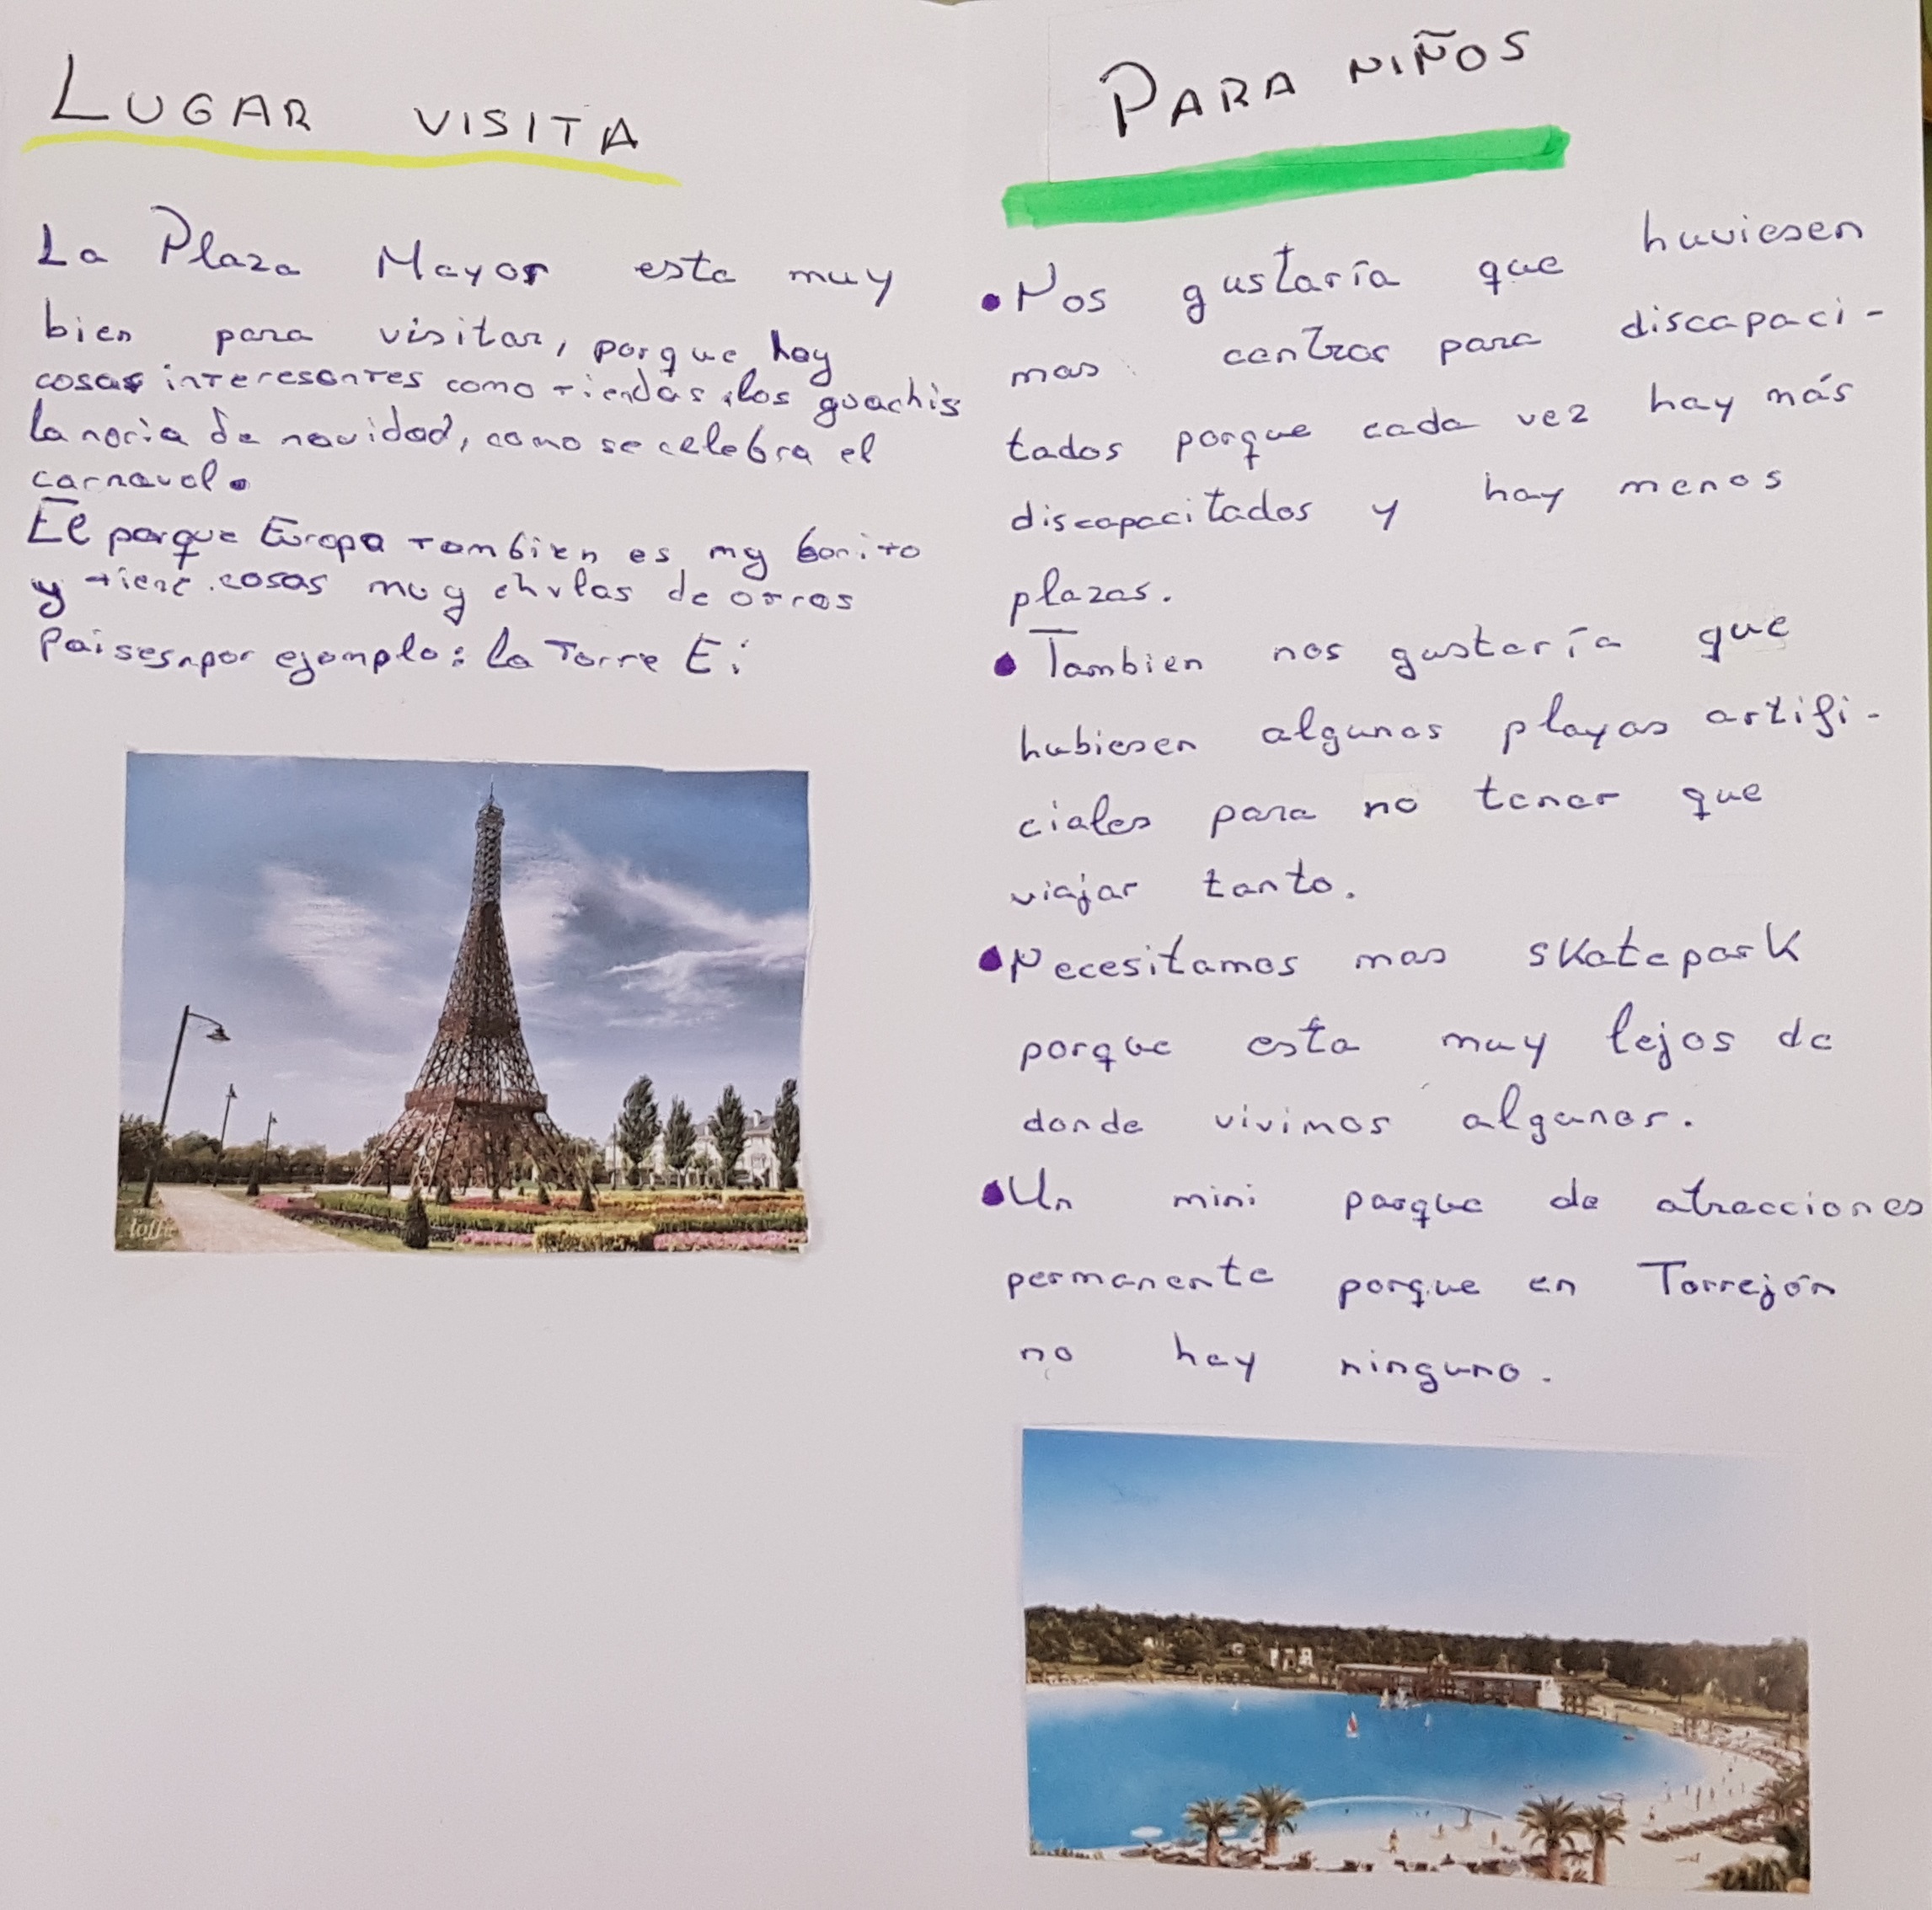 LUGAR VISITA
La Plaza Mayor esta muy
bien para visitar, porque hay
cosas interesantes como tiendas, los guachis
la noria de navidad, como se celebra el
carnaval.
El parque Europa tambien es my bonito
y tiene cosas muy chulas de otros
Paises, por ejemplo: la Torre Ei
PARA NIÑOS
• Nos gustaría que huviesen
mas centros para discapaci-
tados porque cada vez hay más
discapacitados y hay menos
plazas.
• Tambien nos gustaría que
hubiesen algunas playas artifi-
ciales para no tener que
viajar tanto.
• Necesitamos mas skatepark
porque esta muy lejos de
donde vivimos algunos.
• Un mini parque de atracciones
permanente porque en Torrejón
no hay ninguno.